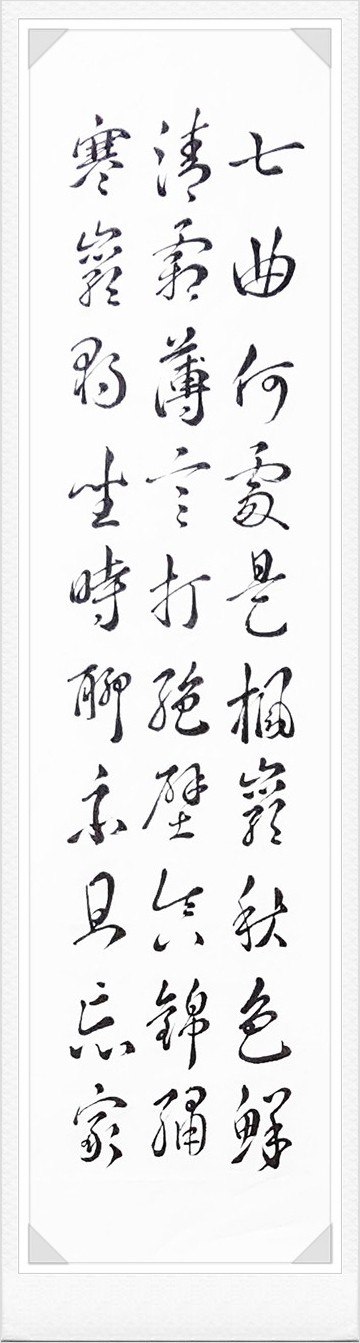 七曲何處是楓巖秋色鮮
清霜薄言打絶壁眞錦繡
寒巖獨坐時聊亦且忘家